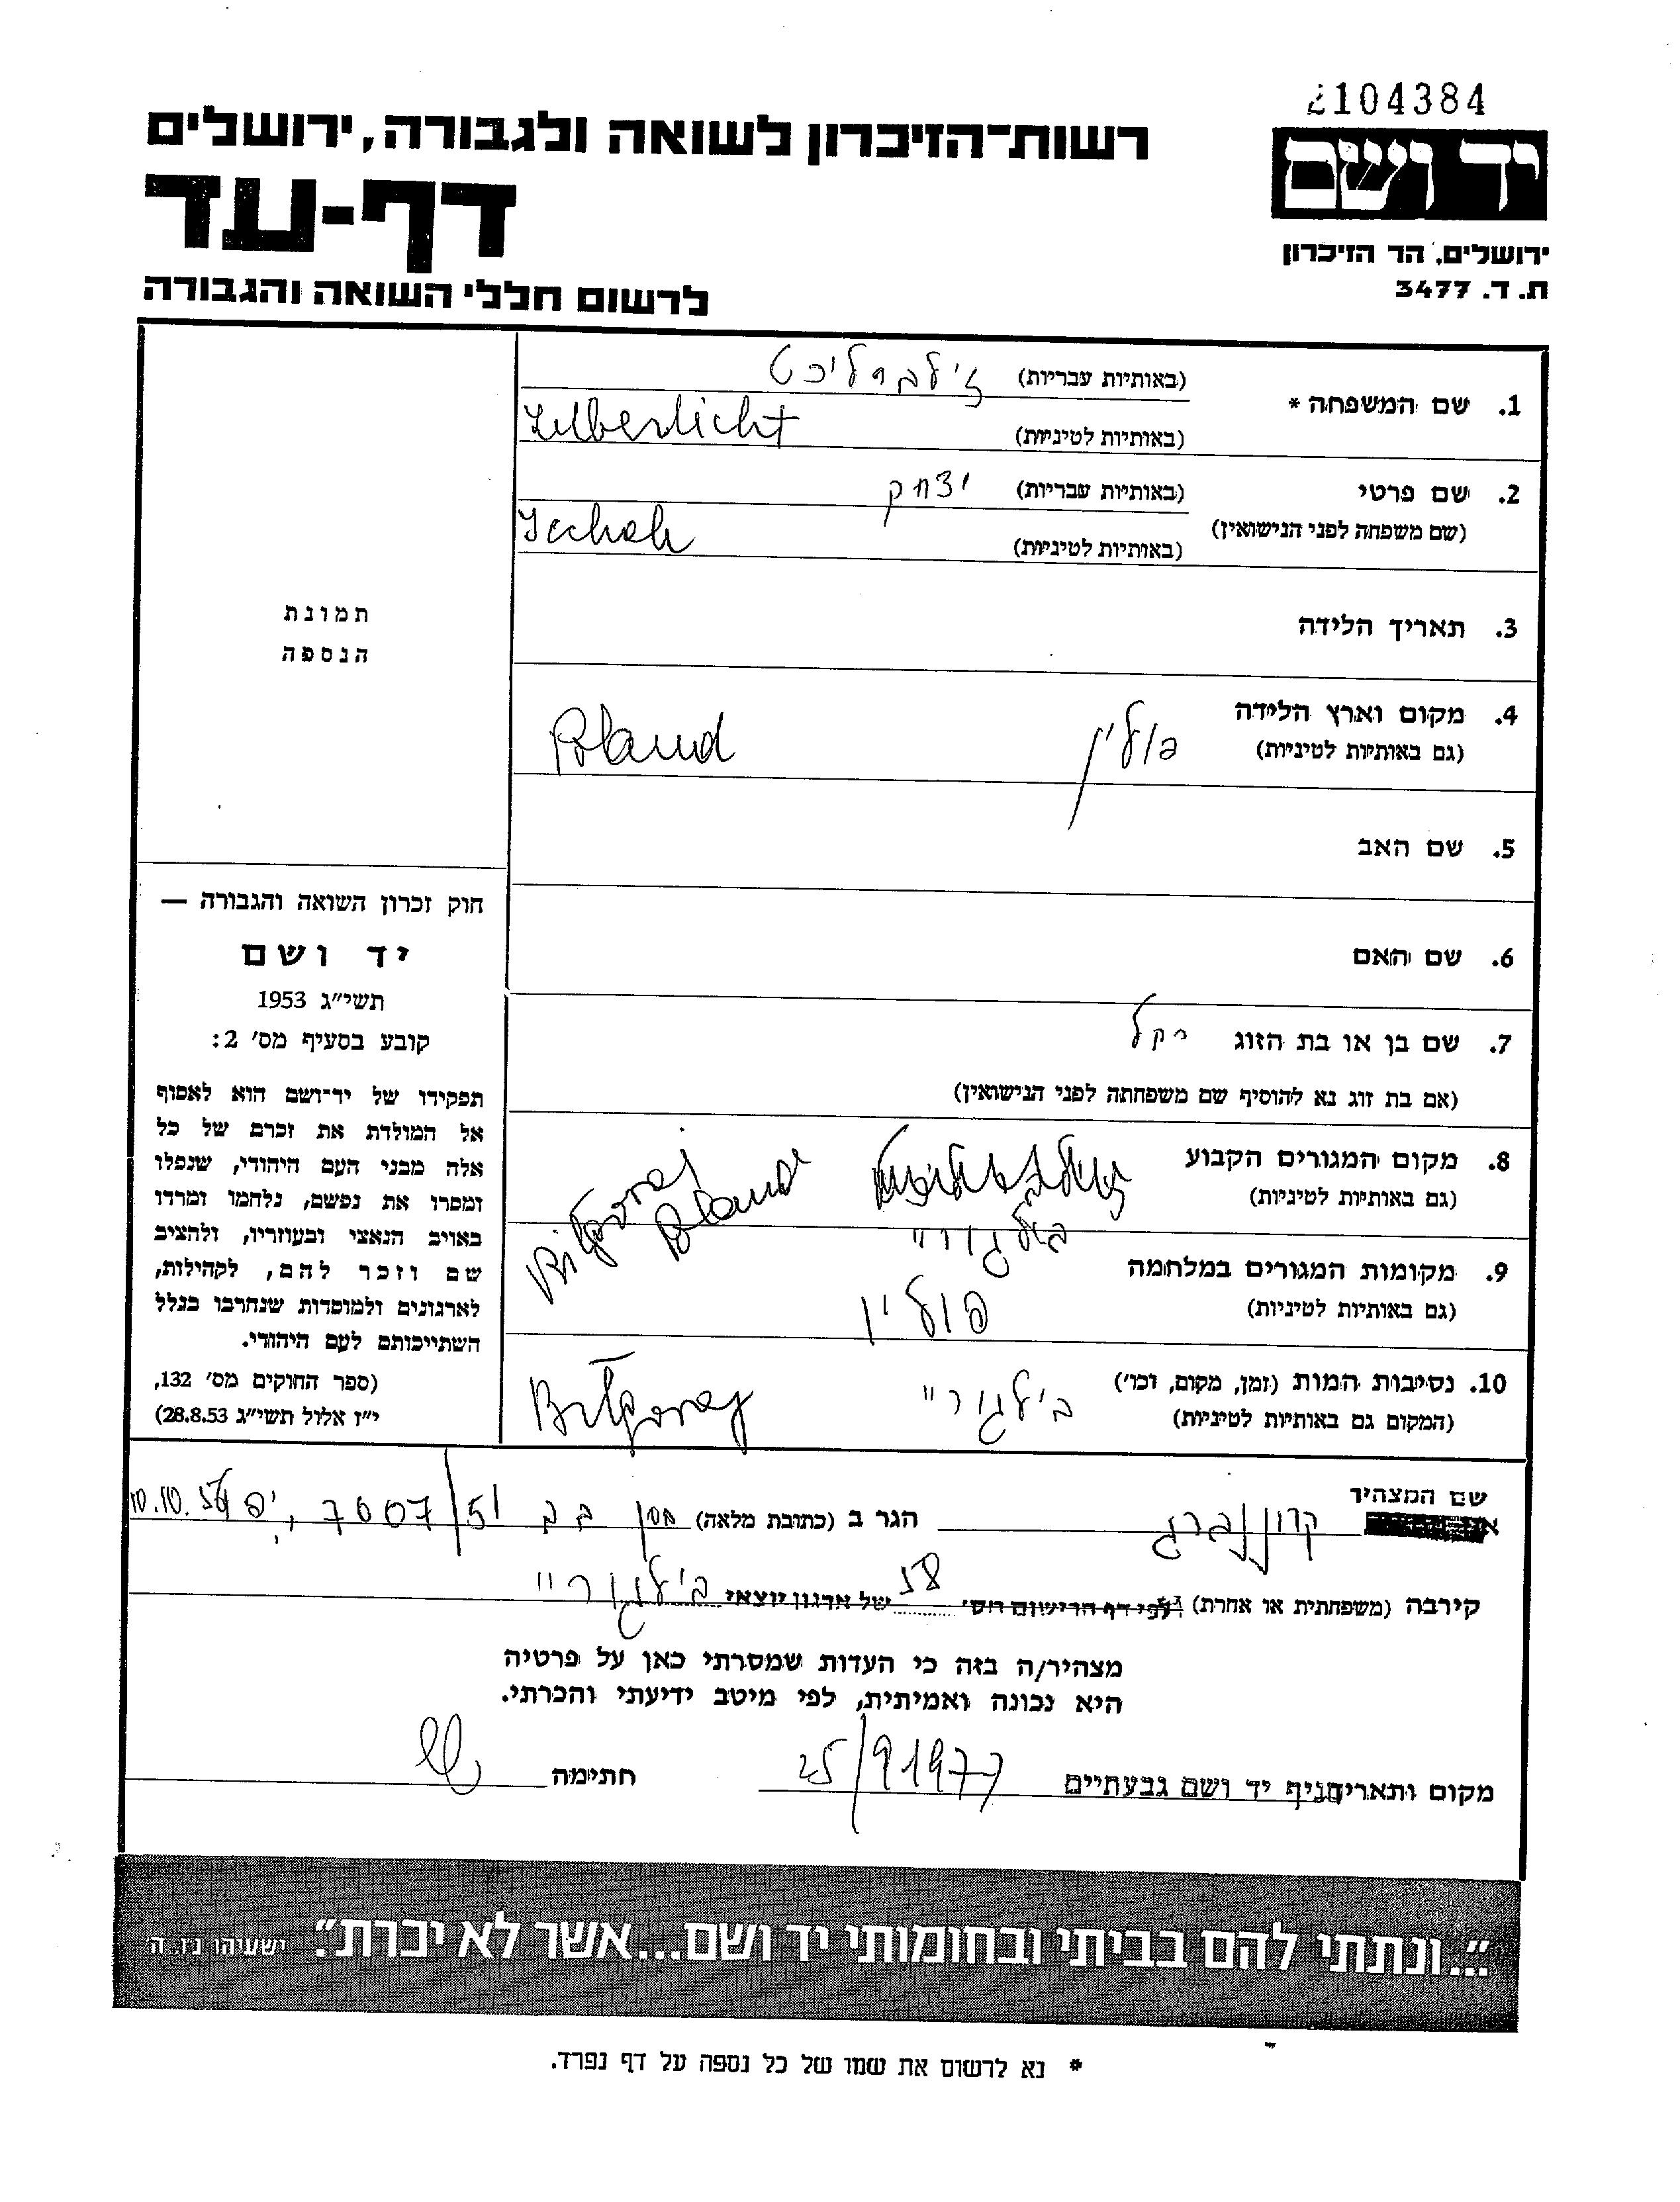 2104384
רשות־הזיכרון לשואה ולגבורה, ירושלים
יד ושם
דף-עד
ירושלים, הר הזיכרון
ת. ד. 3477
לרשום חללי השואה והגבורה
1. שם המשפחה * (באותיות עבריות) זילברליכט
(באותיות לטיניות) Zilberlicht
2. שם פרטי (באותיות עבריות) יצחק
(שם משפחה לפני הנישואין) (באותיות לטיניות) Icchak
3. תאריך הלידה
תמונת
הנספה
4. מקום וארץ הלידה פולין Poland
(גם באותיות לטיניות)
5. שם האב
6. שם האם
7. שם בן או בת הזוג רקל
(אם בת זוג נא להוסיף שם משפחתה לפני הנישואין)
8. מקום המגורים הקבוע
(גם באותיות לטיניות)
בילגוריי Biłgoraj Poland
9. מקומות המגורים במלחמה
(גם באותיות לטיניות) פולין
10. נסיבות המות (זמן, מקום, וכו') בילגוריי Biłgoraj
(המקום גם באותיות לטיניות)
חוק זכרון השואה והגבורה —
יד ושם
תשי״ג 1953
קובע בסעיף מס׳ 2:
תפקידו של יד־ושם הוא לאסוף
אל המולדת את זכרם של כל
אלה מבני העם היהודי, שנפלו
ומסרו את נפשם, נלחמו ומרדו
באויב הנאצי ובעוזריו, ולהציב
שם וזכר להם, לקהילות,
לארגונים ולמוסדות שנחרבו בגלל
השתייכותם לעם היהודי.
(ספר החוקים מס׳ 132,
י״ז אלול תשי״ג 28.8.53)
שם המצהיר קרוננברג הגר ב (כתובת מלאה)
קירבה (משפחתית או אחרת) לפי דף הרישום מס׳ 58 של ארגון יוצאי בילגוריי
מצהיר/ה בזה כי העדות שמסרתי כאן על פרטיה
היא נכונה ואמיתית, לפי מיטב ידיעתי והכרתי.
מקום ותאריך סניף יד ושם גבעתיים 25/9 1977 חתימה
״...ונתתי להם בביתי ובחומותי יד ושם...אשר לא יכרת״. ישעיהו נו, ה
* נא לרשום את שמו של כל נספה על דף נפרד.